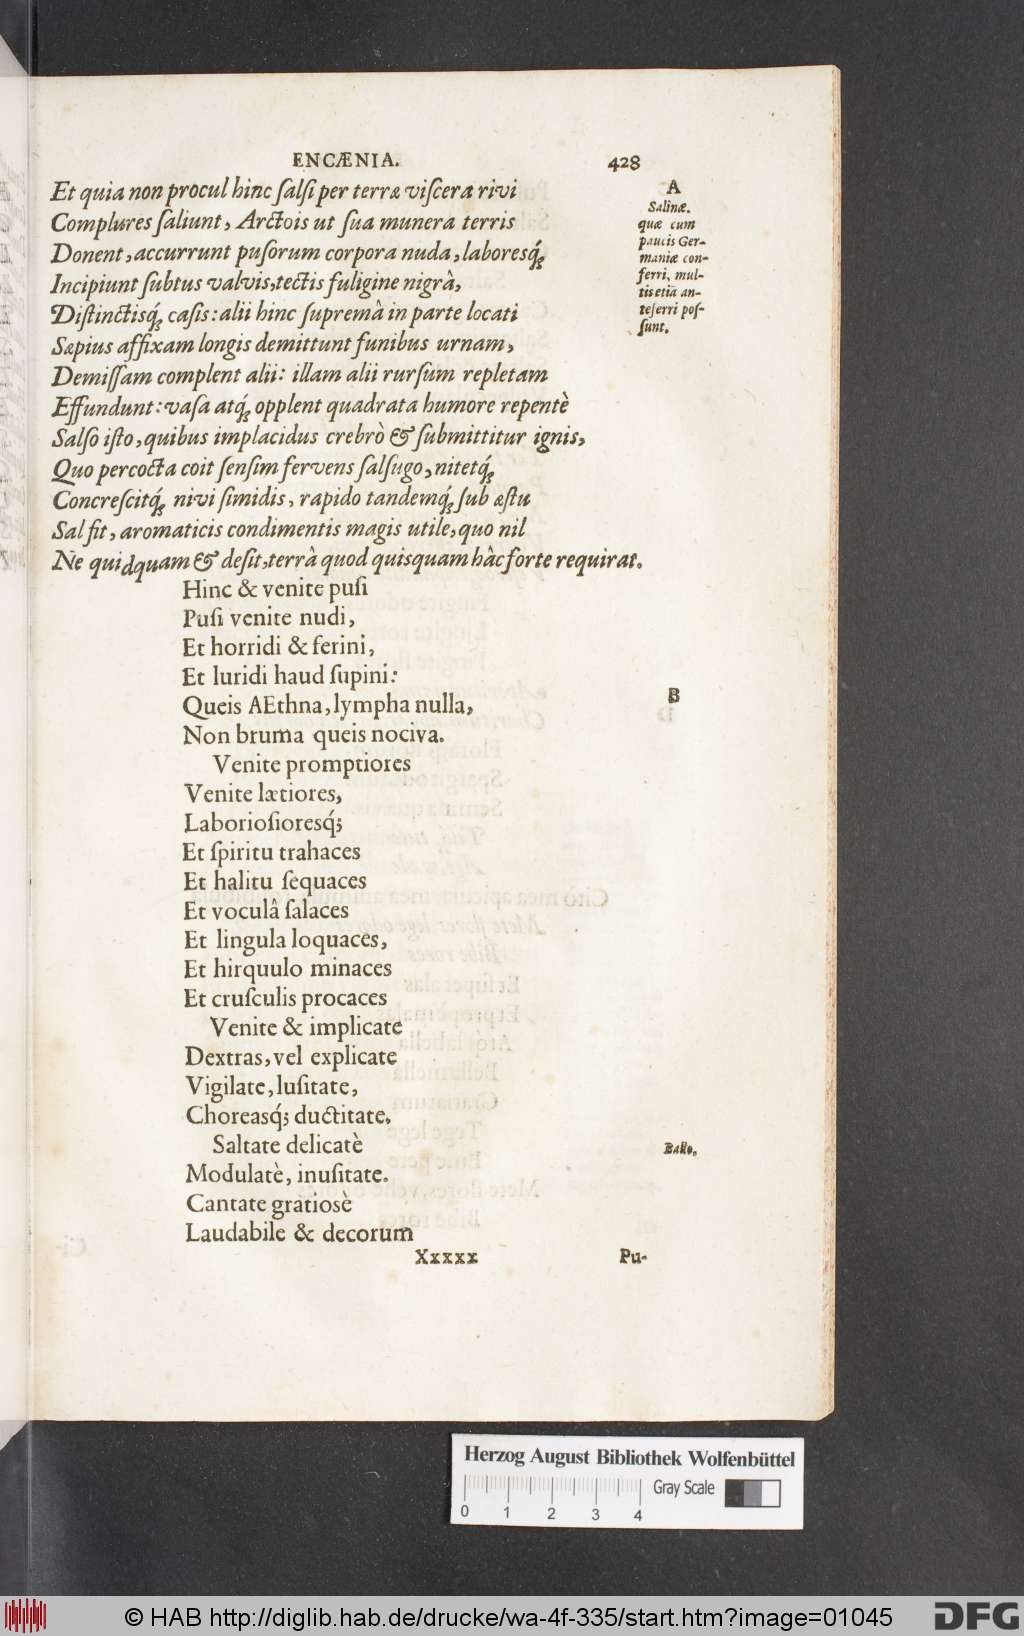 ENCÆNIA. 428
Et quia non procul hinc ſalſi per terræ viſcera rivi
Complures ſaliunt, Arctois ut ſua munera terris
Donent, accurrunt puſorum corpora nuda, laboresq́;
Incipiunt ſubtus valvis, tectis fuligine nigrâ,
Diſtinctisq́; caſis: alii hinc ſupremâ in parte locati
Sæpius affixam longis demittunt funibus urnam,
Demiſſam complent alii: illam alii rurſum repletam
Effundunt: vaſa atq́; opplent quadrata humore repentè
Salſo iſto, quibus implacidus crebrò & ſubmittitur ignis,
Quo percocta coit ſenſim fervens ſalſugo, nitetq́;
Concreſcitq́; nivi ſimidis, rapido tandemq́; ſub æſtu
Sal fit, aromaticis condimentis magis utile, quo nil
Ne quidquam & deſit, terrâ quod quisquam hâc forte requirat.
A
Salinæ.
quæ cum
paucis Ger-
maniæ con-
ferri, mul-
tis etiā an-
teferri poſ-
ſunt.
Hinc & venite puſi
Puſi venite nudi,
Et horridi & ferini,
Et luridi haud ſupini:
Queis AEthna, lympha nulla,
Non bruma queis nociva.
Venite promptiores
Venite lætiores,
Laborioſioresq́;
Et ſpiritu trahaces
Et halitu ſequaces
Et voculâ ſalaces
Et lingula loquaces,
Et hirquulo minaces
Et cruſculis procaces
Venite & implicate
Dextras, vel explicate
Vigilate, luſitate,
Choreasq́; ductitate.
Saltate delicatè
Modulatè, inuſitate.
Cantate gratiosè
Laudabile & decorum
B
Ballo.
Xxxxx Pu-
Herzog August Bibliothek Wolfenbüttel
Gray Scale
0 1 2 3 4
© HAB http://diglib.hab.de/drucke/wa-4f-335/start.htm?image=01045 DFG